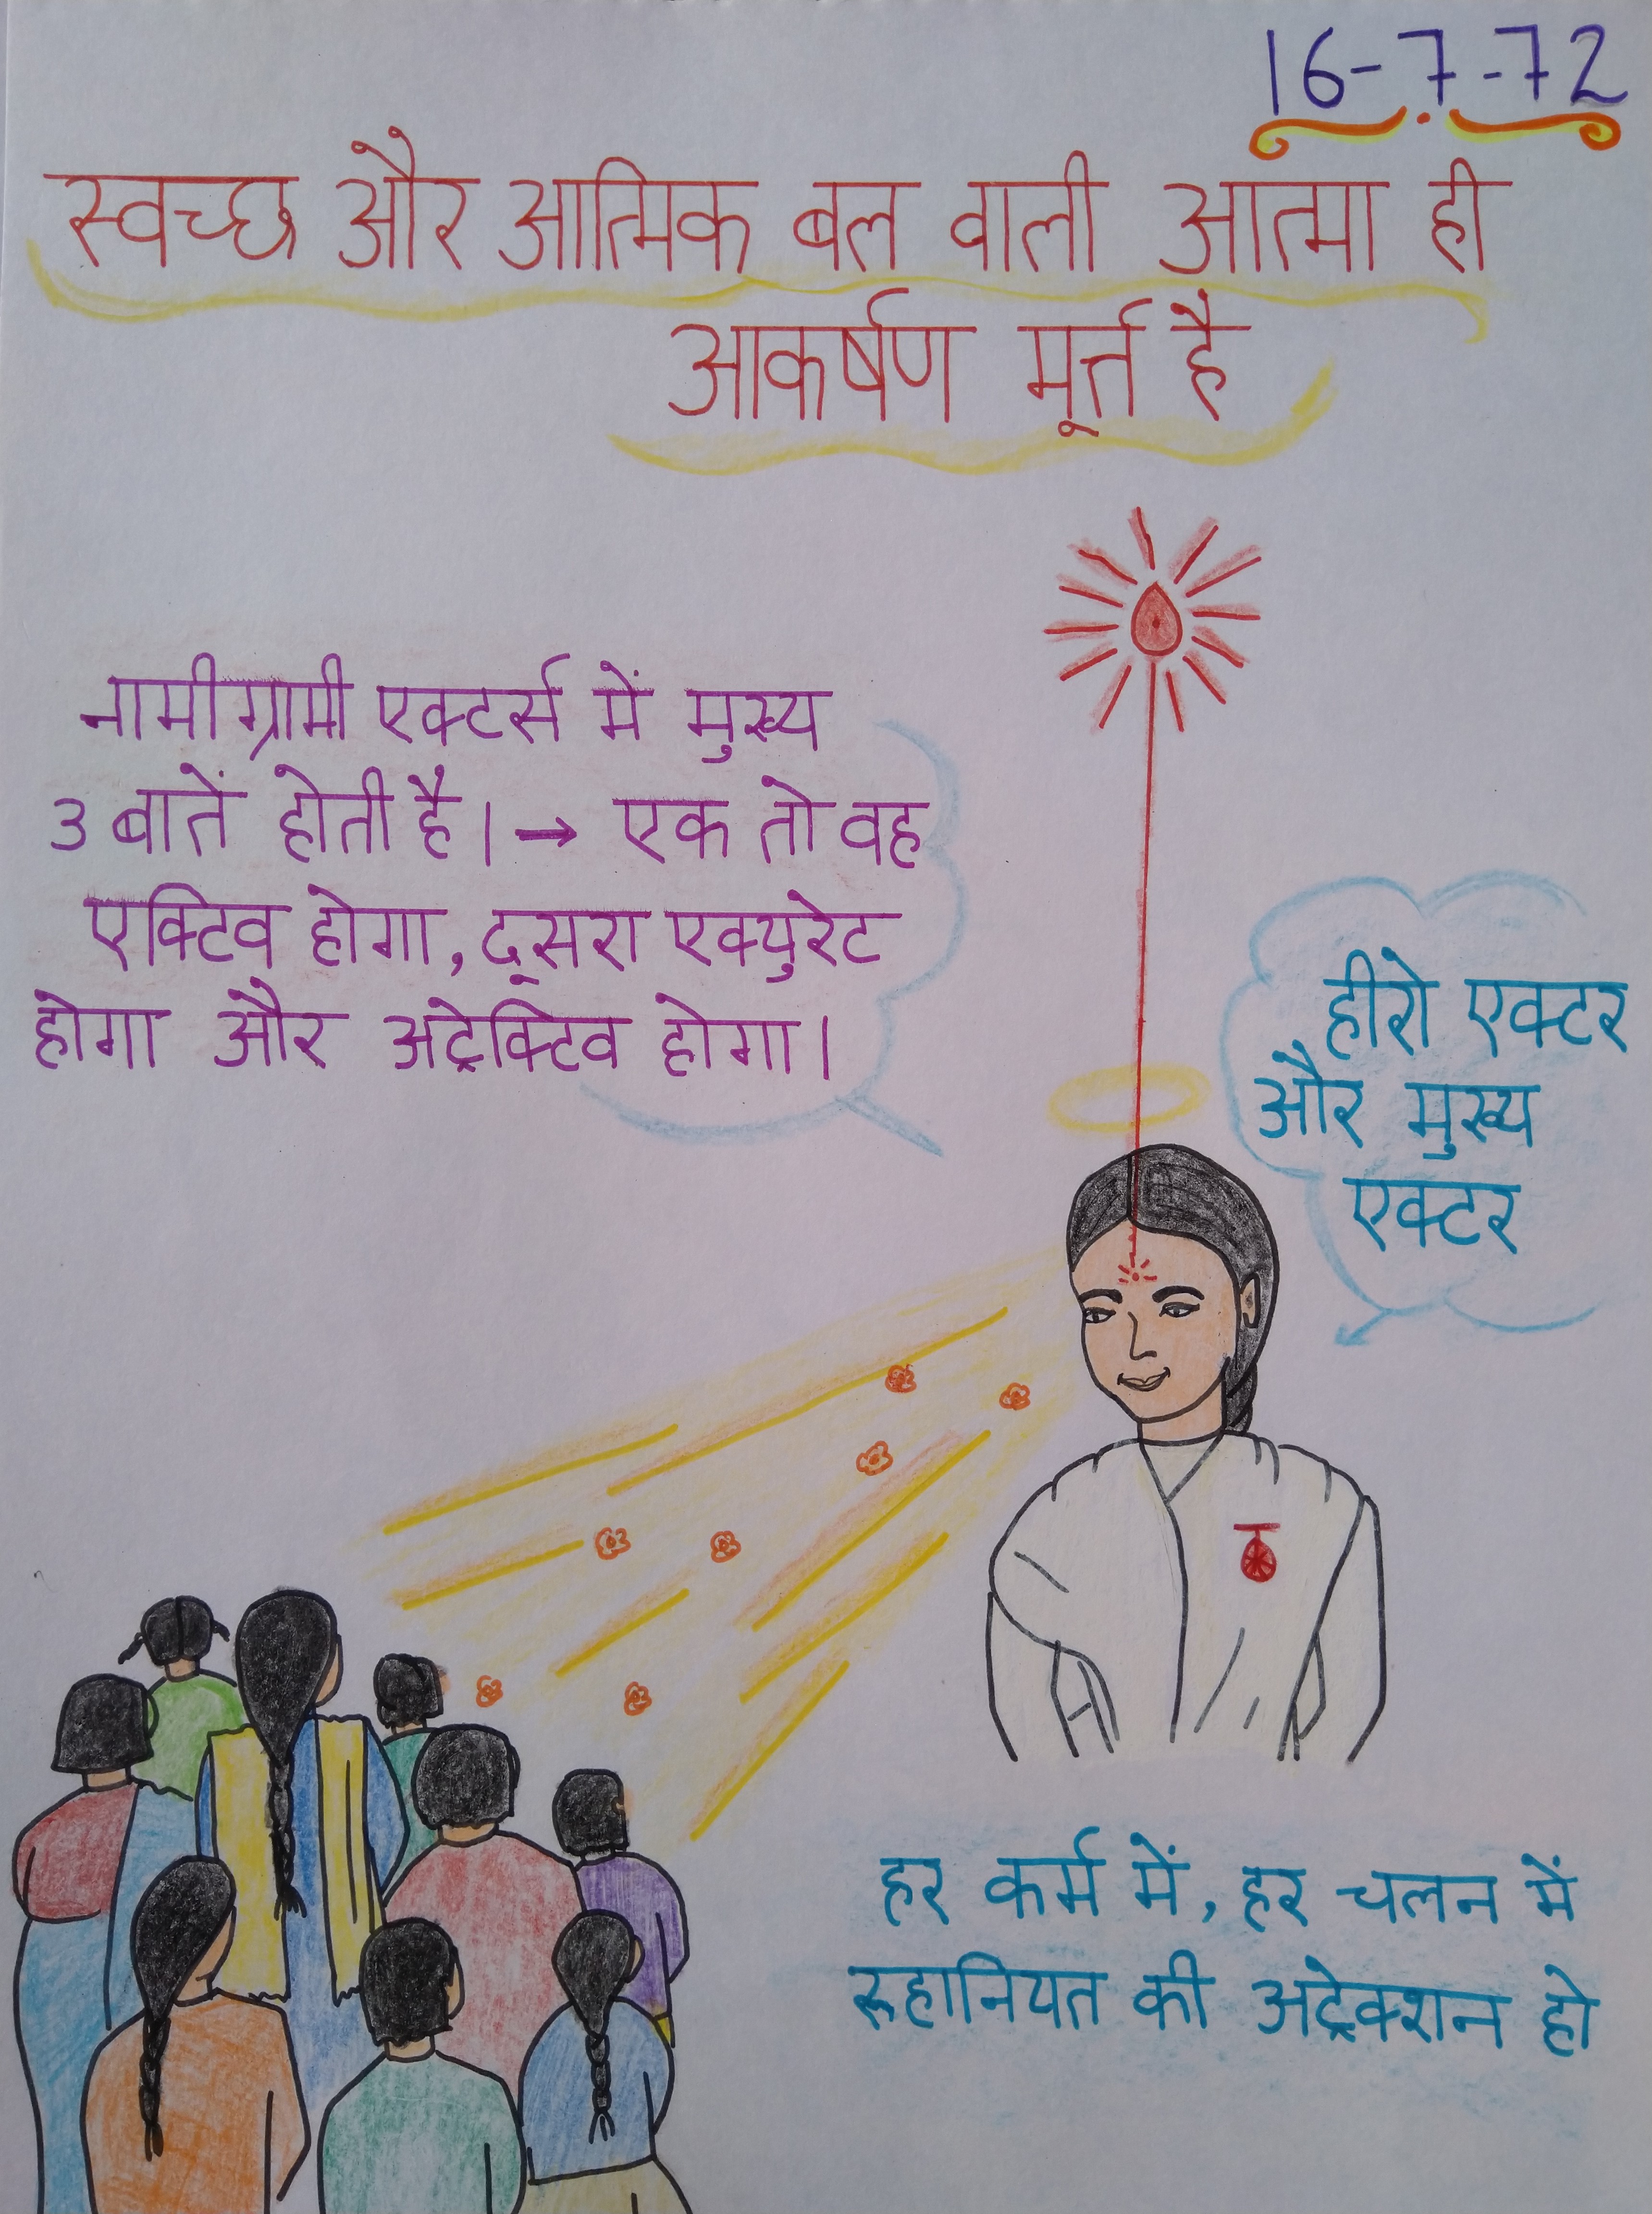 16-7-72
स्वच्छ और आत्मिक बल वाली आत्मा ही
आकर्षण मूर्त है
नामीग्रामी एक्टर्स में मुख्य
3 बातें होती है। → एक तो वह
एक्टिव होगा, दूसरा एक्युरेट
होगा और अट्रेक्टिव होगा।
हीरो एक्टर
और मुख्य
एक्टर
हर कर्म में, हर चलन में
रूहानियत की अट्रेक्शन हो